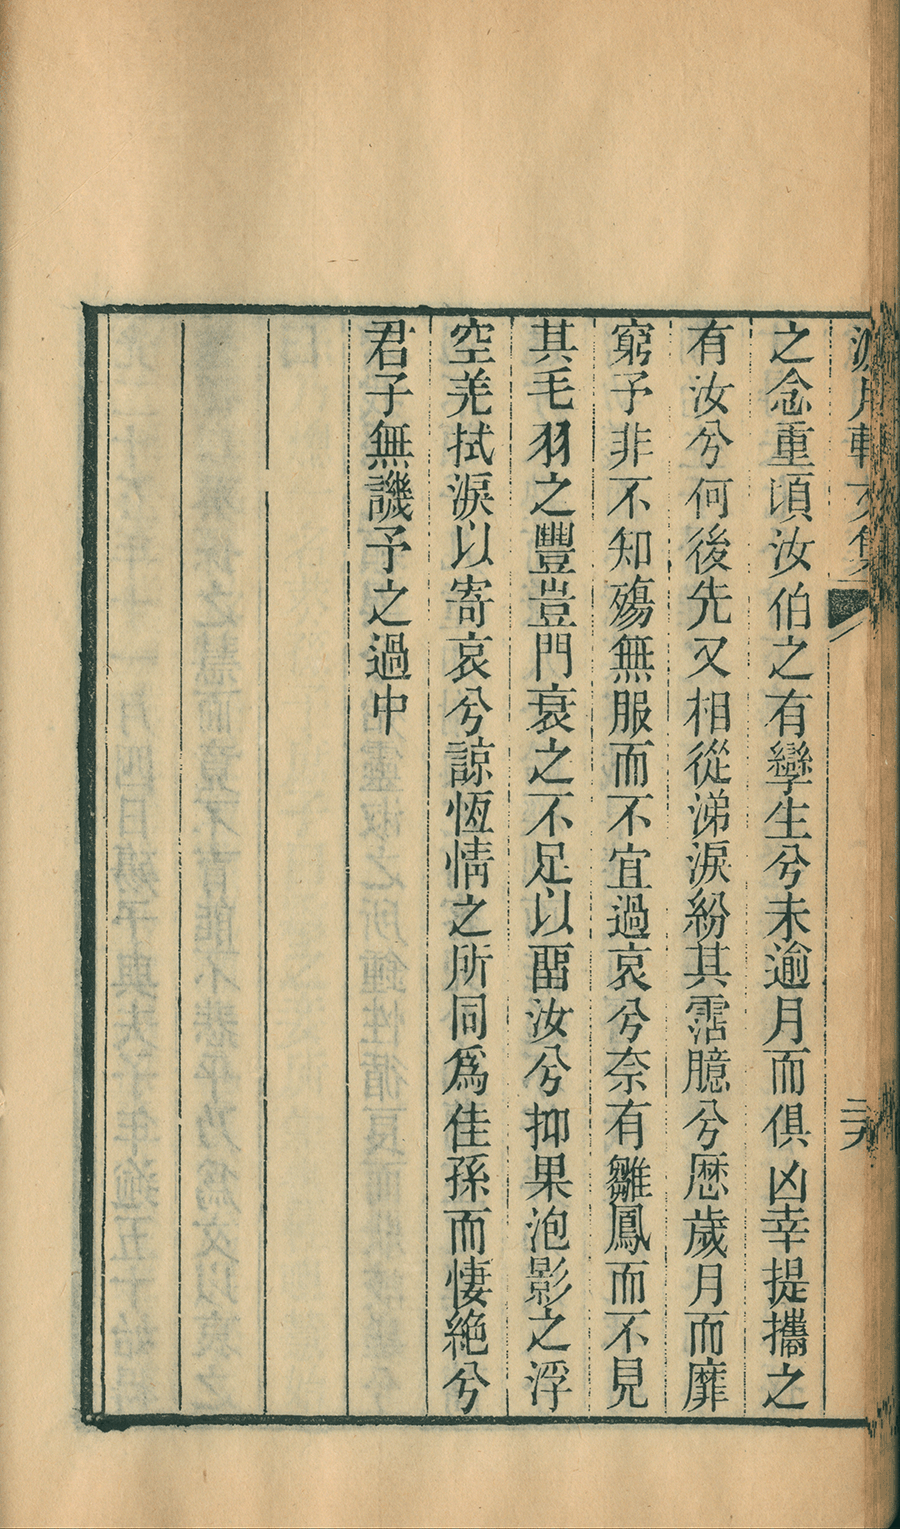 之念重頃汝伯之有孿生兮未逾月而俱凶幸提攜之
有汝兮何後先又相從涕淚紛其霑臆兮歷歲月而靡
窮予非不知殤無服而不宜過哀兮奈有雛鳳而不見
其毛羽之豐豈門衰之不足以畱汝兮抑果泡影之浮
空羌拭淚以寄哀兮諒恆情之所同爲佳孫而悽絶兮
君子無譏予之過中